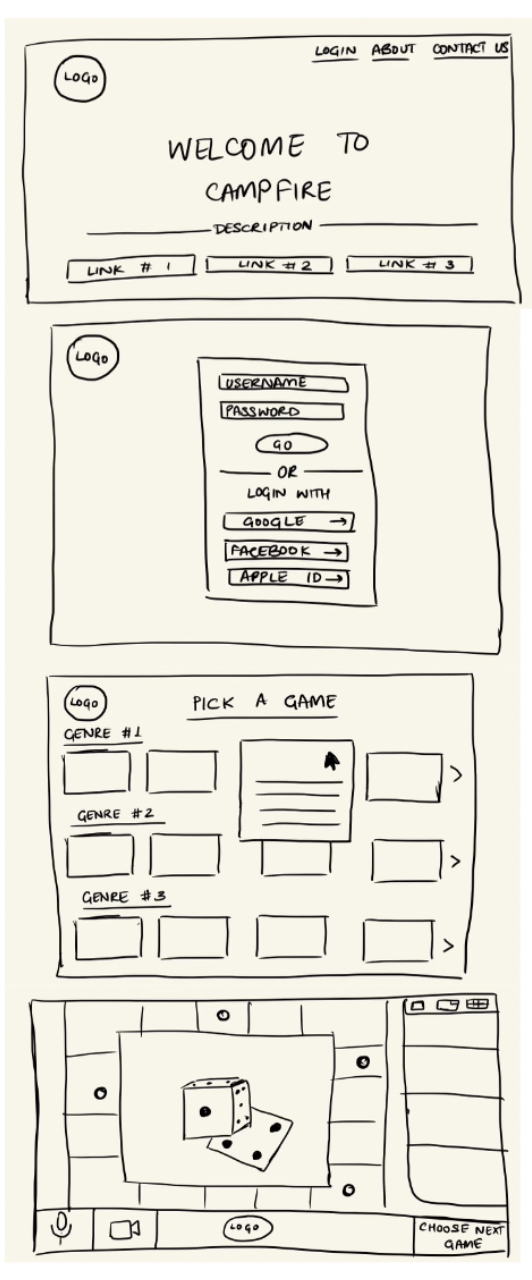 LOGO
LOGIN ABOUT CONTACT US
WELCOME TO
CAMPFIRE
DESCRIPTION
LINK # 1 LINK # 2 LINK # 3
LOGO
USERNAME
PASSWORD
GO
OR
LOGIN WITH
GOOGLE →
FACEBOOK →
APPLE ID →
LOGO
PICK A GAME
GENRE #1
GENRE #2
GENRE #3
LOGO
CHOOSE NEXT
GAME